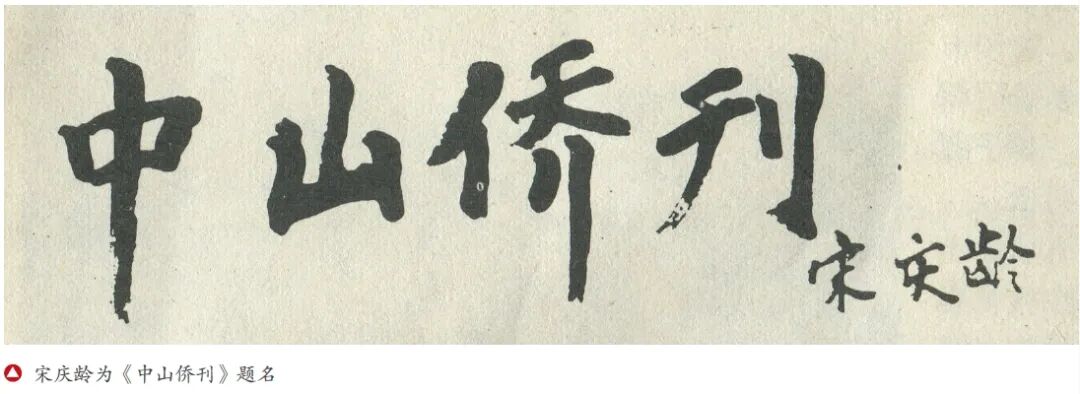 中山侨刊
宋庆龄
宋庆龄为《中山侨刊》题名